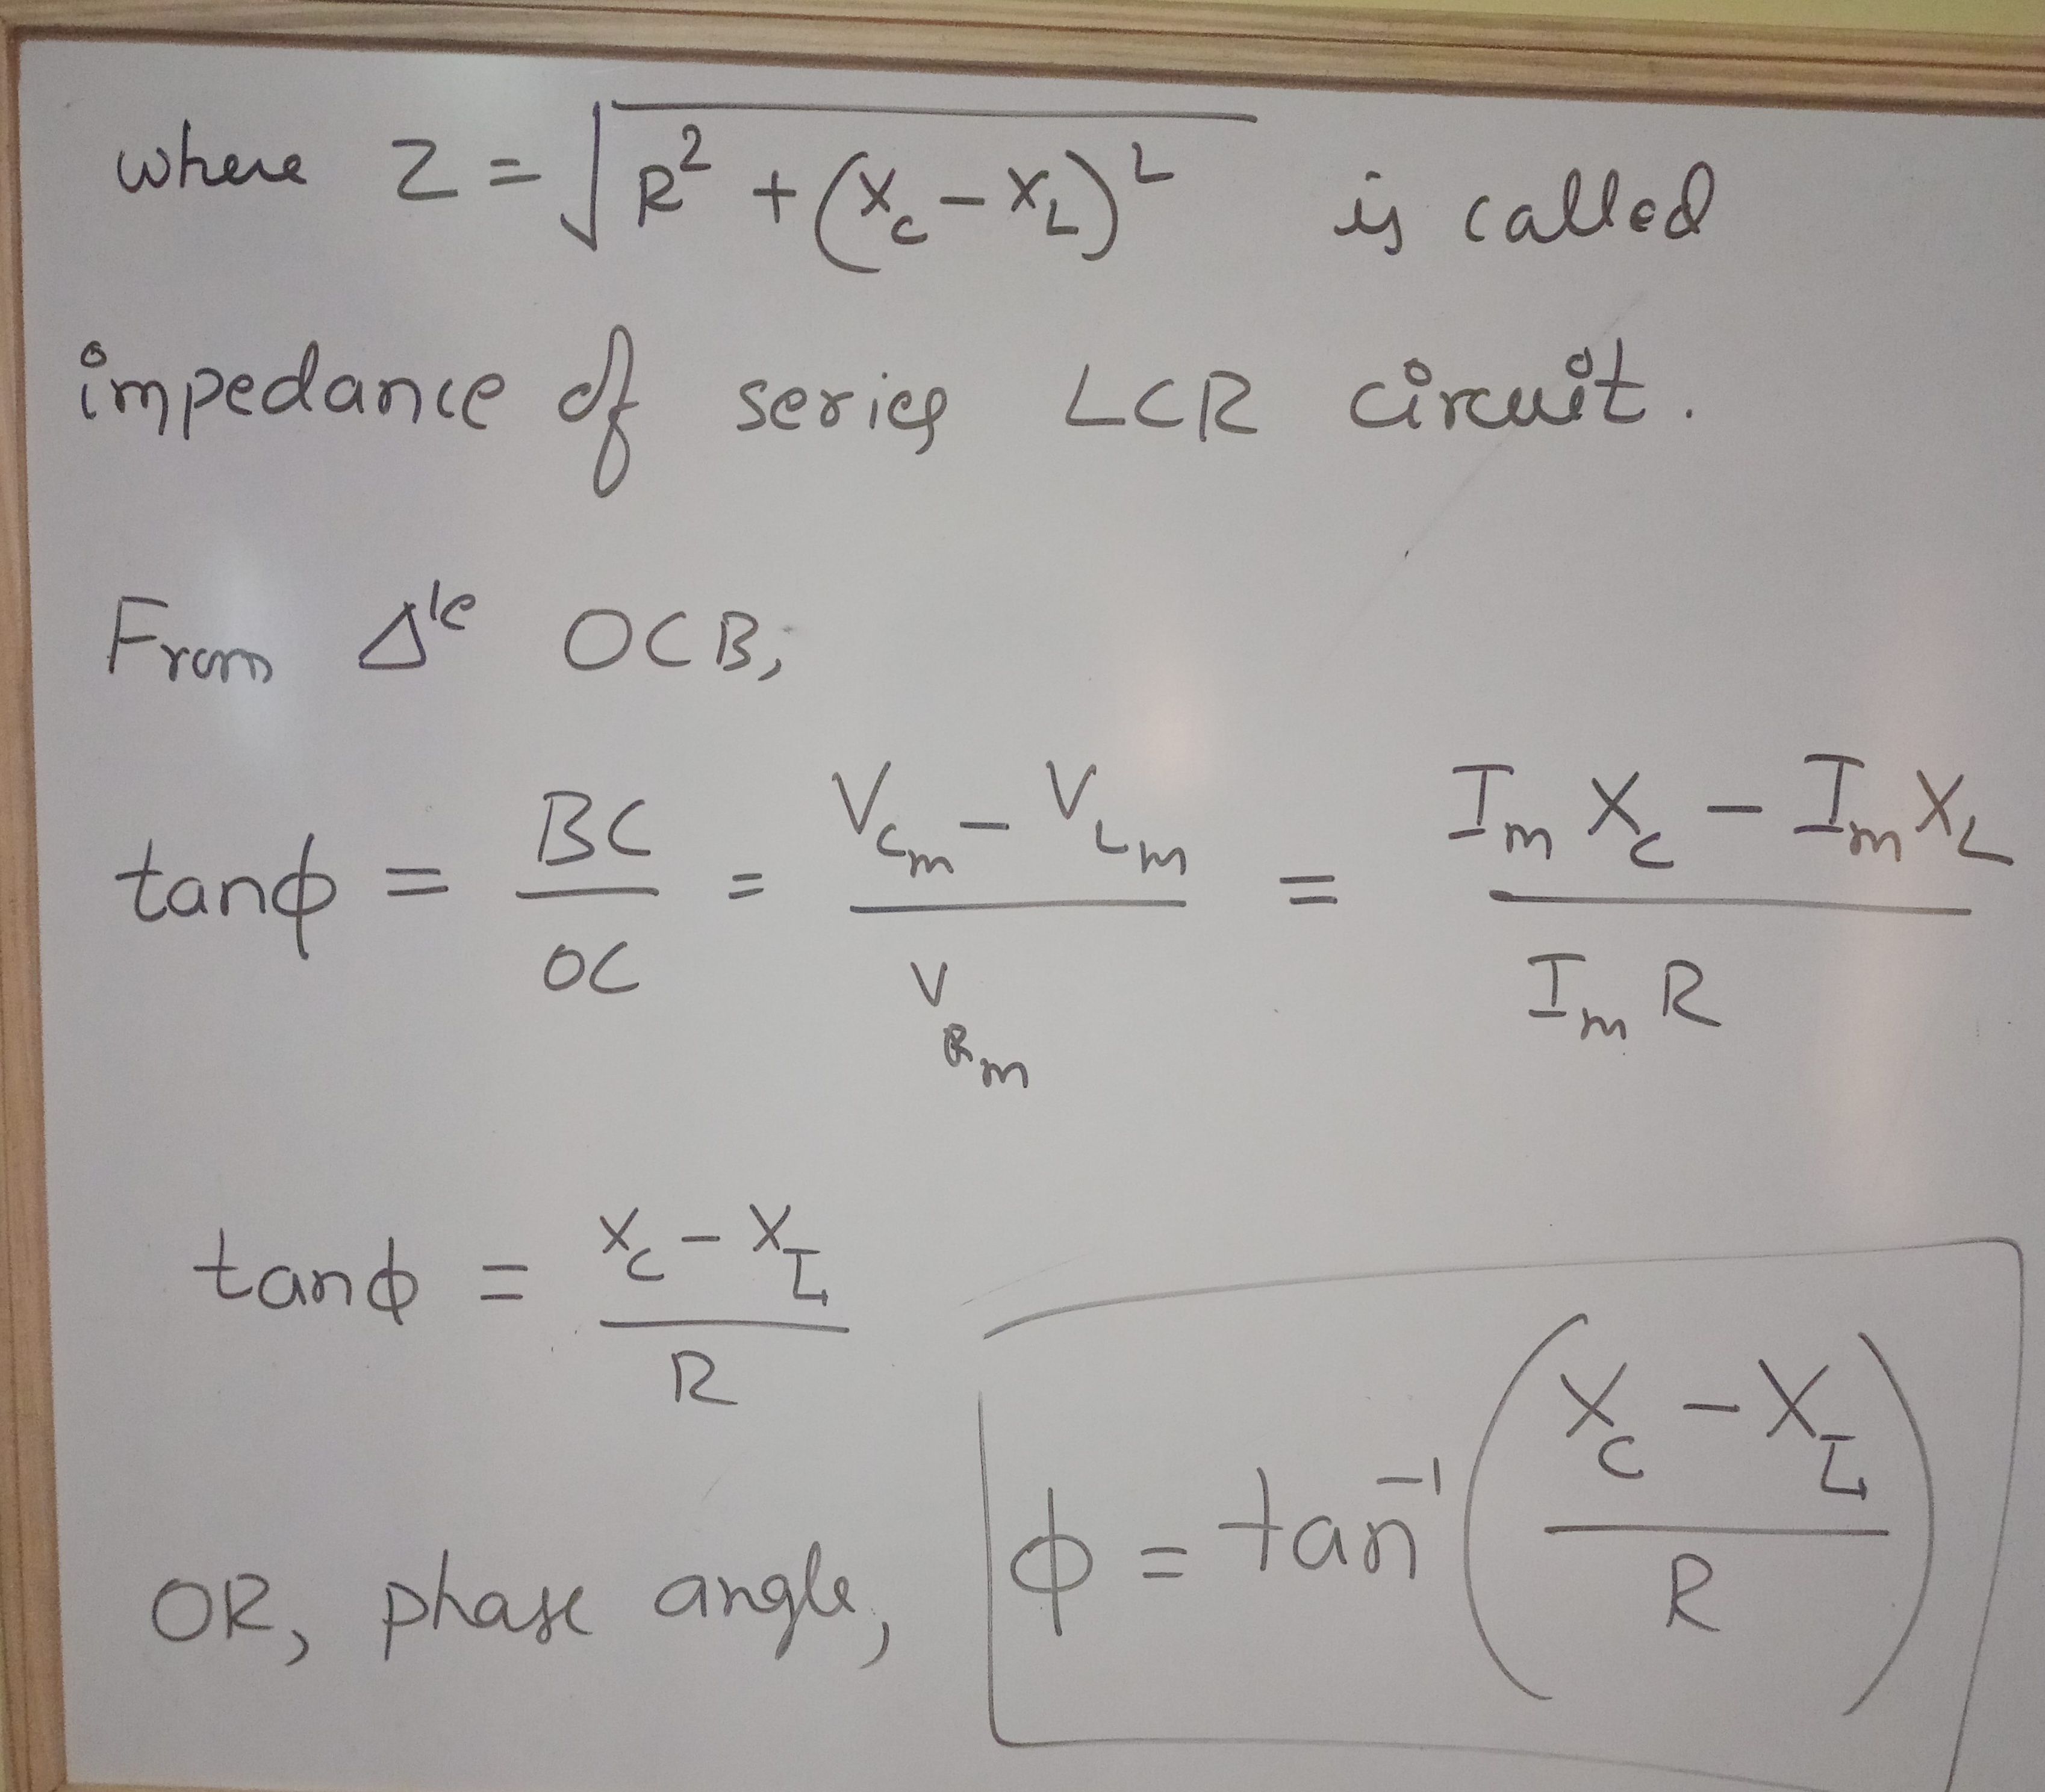 where Z = √(R² + (X_C − X_L)²) is called
impedance of series LCR circuit.
From Δle OCB,
tanϕ = BC/OC = (V_Cm − V_Lm)/V_Rm = (I_m X_C − I_m X_L)/(I_m R)
tanϕ = (X_C − X_L)/R
OR, phase angle, ϕ = tan⁻¹((X_C − X_L)/R)